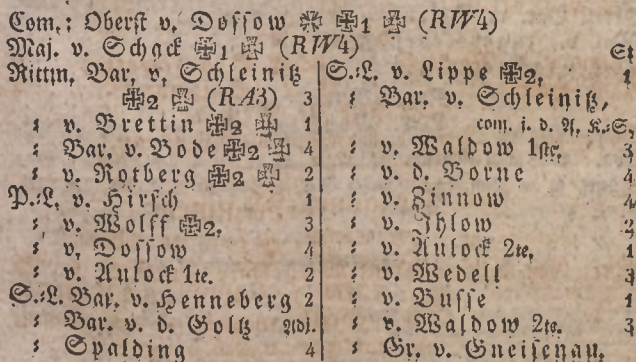 Com.: Oberst v. Dossow ※ ✠1 ✠ (RW4)
Maj. v. Schack ✠1 ✠ (RW4)
Rittm. Bar. v. Schleinitz
✠2 ✠ (RA3) 3
: v. Brettin ✠2 ✠ 1
: Bar. v. Bode ✠2 ✠ 4
: v. Rotberg ✠2 ✠ 2
P.-L. v. Hirsch 1
: v. Wolff ✠2. 3
: v. Dossow 4
: v. Aulock 1te. 2
S.-L. Bar. v. Henneberg 2
: Bar. v. d. Goltz Adj.
: Spalding 4
S.-L. v. Lippe ✠2. 1
: Bar. v. Schleinitz,
com. i. d. A. K.-S.
: v. Waldow 1ste. 3
: v. d. Borne 4
: v. Zinnow 4
: v. Ihlow 2
: v. Aulock 2te. 1
: v. Wedell 3
: v. Busse 1
: v. Waldow 2te. 3
: Gr. v. Gneisenau.